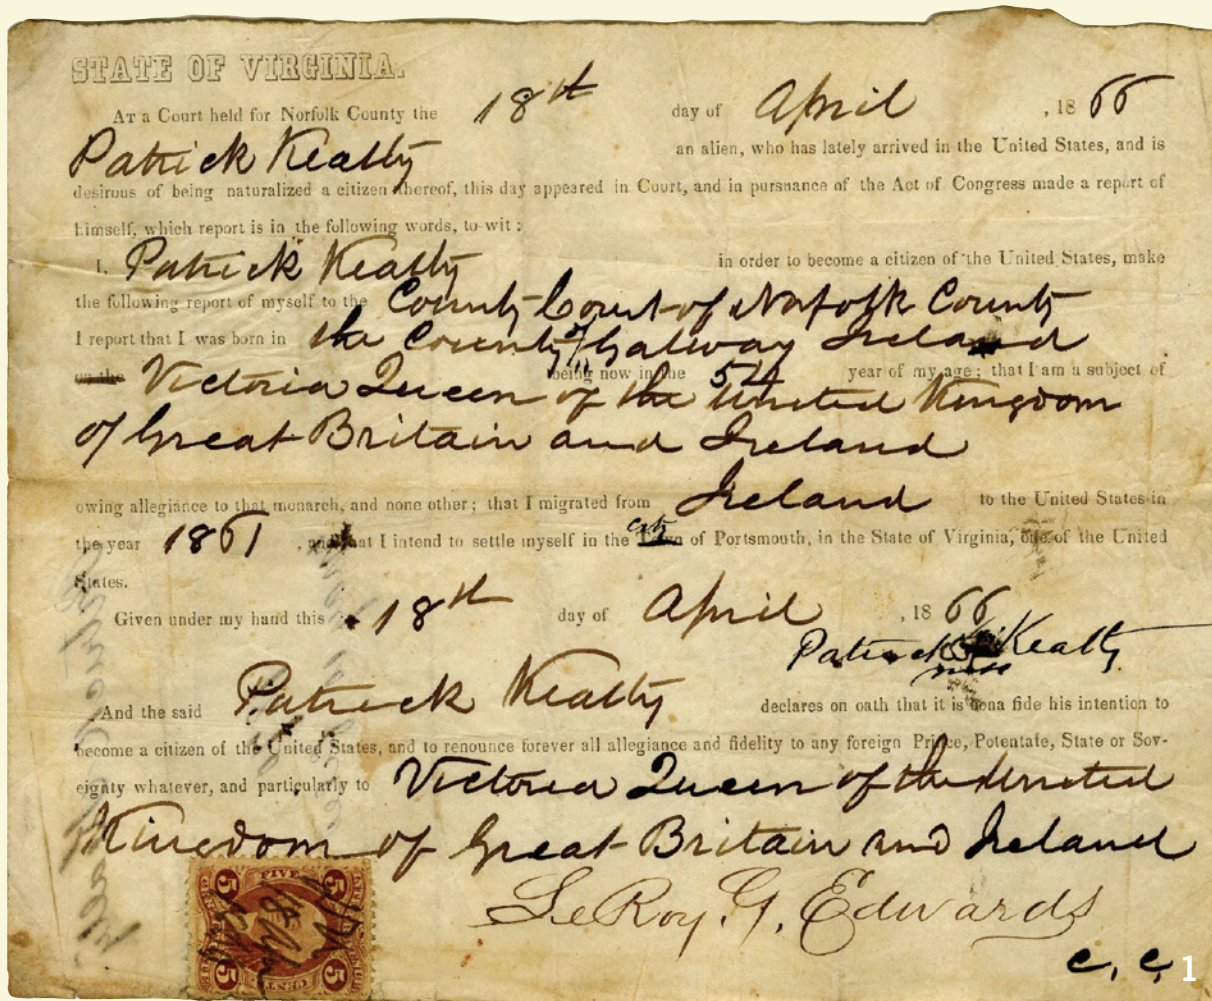 STATE OF VIRGINIA.
AT a Court held for Norfolk County the 18th day of April , 1866
Patrick Kealty an alien, who has lately arrived in the United States, and is
desirous of being naturalized a citizen thereof, this day appeared in Court, and in pursuance of the Act of Congress made a report of
himself, which report is in the following words, to wit:
I. Patrick Kealty in order to become a citizen of the United States, make
the following report of myself to the County Court of Norfolk County
I report that I was born in the County of Galway Ireland
on the being now in the 54 year of my age; that I am a subject of
Victoria Queen of the United Kingdom
of Great Britain and Ireland
owing allegiance to that monarch, and none other; that I migrated from Ireland to the United States in
the year 1861 , and that I intend to settle myself in the Town city of Portsmouth, in the State of Virginia, one of the United
States.
Given under my hand this 18th day of April , 1866
Patrick Kealty
And the said Patrick Kealty declares on oath that it is bona fide his intention to
become a citizen of the United States, and to renounce forever all allegiance and fidelity to any foreign Prince, Potentate, State or Sov-
eighty whatever, and particularly to Victoria Queen of the United
Kingdom of Great Britain and Ireland
LeRoy. G. Edwards
C. C.
5 FIVE 5
5 CENT 5
1